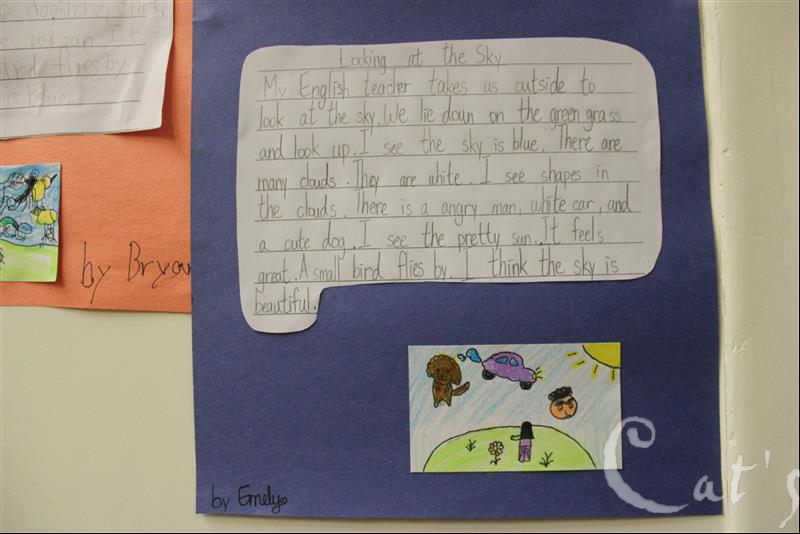 Looking at the Sky
My English teacher takes us outside to
look at the sky. We lie down on the green grass
and look up. I see the sky is blue. There are
many clouds. They are white. I see shapes in
the clouds. There is a angry man, white car, and
a cute dog. I see the pretty sun. It feels
great. A small bird flies by. I think the sky is
beautiful.
by Emely
by Bryan
red sun. It
bird flies by.
is blue
Cat's